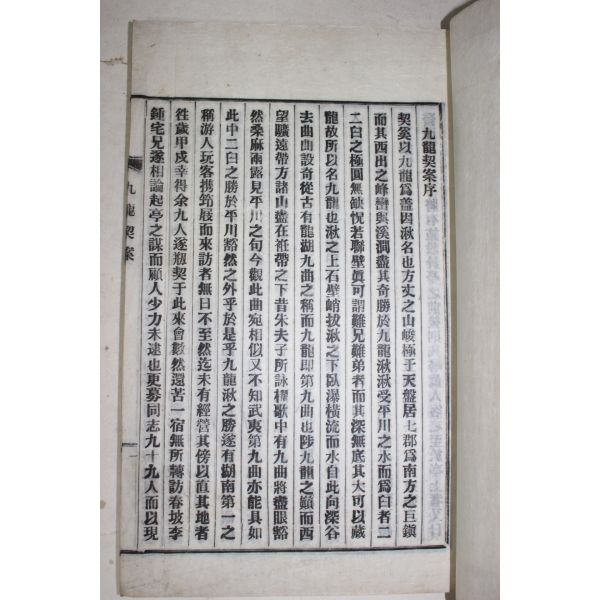 九龍契案序
契奚以九龍爲盖因湫名也方丈之山峻極于天盤居七郡爲南方之巨鎭
而其西出之峰巒與溪澗盡其奇勝於九龍湫湫受平川之水而爲臼者二
二臼之極圓無缺怳若聯璧眞可謂難兄難弟者而其深無底其大可以藏
龍故所以名九龍也湫之上石壁峭拔湫之下臥瀑橫流而水自此向深谷
去曲曲設奇從古有龍湖九曲之稱而九龍即第九曲也陟九龍之巓而西
望曠遠帶方諸山盡在袵帶之下昔朱夫子所詠櫂歌中有九曲將盡眼豁
然桑麻雨露見平川之句今觀此曲宛相似又不知武夷第九曲亦能具如
此中二臼之勝於平川豁然之外乎於是乎九龍湫之勝遂有湖南第一之
稱游人玩客携筇屐而來訪者無日不至然迄未有經營其傍以直其地者
徃歲甲戌幸得余九人遂刱契于此來會數然還苦一宿無所轉訪春坡李
鍾宅兄遂相論起亭之謀而顧人少力未逮也更募同志九十九人而以現
九龍契案
一